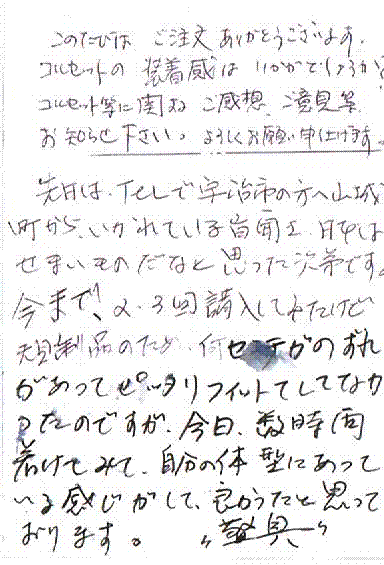 このたびは ご注文 ありがとうございます。
コルセットの 装着感は いかがでしょうか?
コルセット等に関する ご感想 ご意見等
お知らせ下さい。よろしくお願い申し上げます。
先日は、Telで宇治市の方へ山城
町から、いかれている旨聞き、日本は
せまいものだなと思った次第です。
今まで、2・3回購入してみたけど
既製品のため、何センチかのずれ
があってピッタリフィットしてなか
ったのですが、今日、数時間
着けてみて、自分の体型にあって
いる感じがして、良かったと思って
おります。